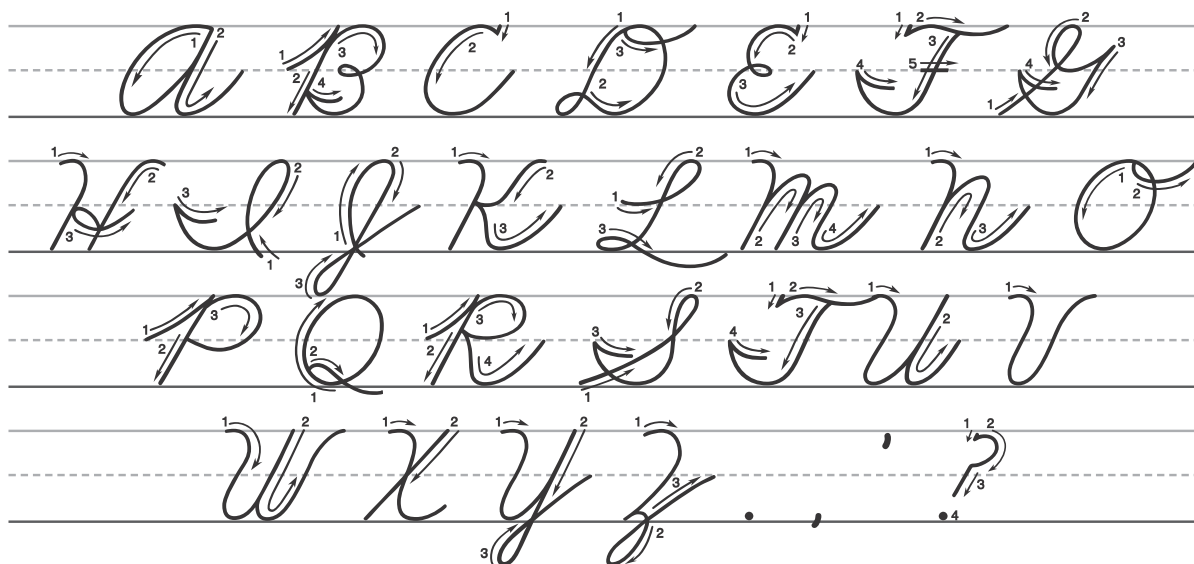 A B C D E F G
H I J K L M N O
P Q R S T U V
W X Y Z . , ' ?